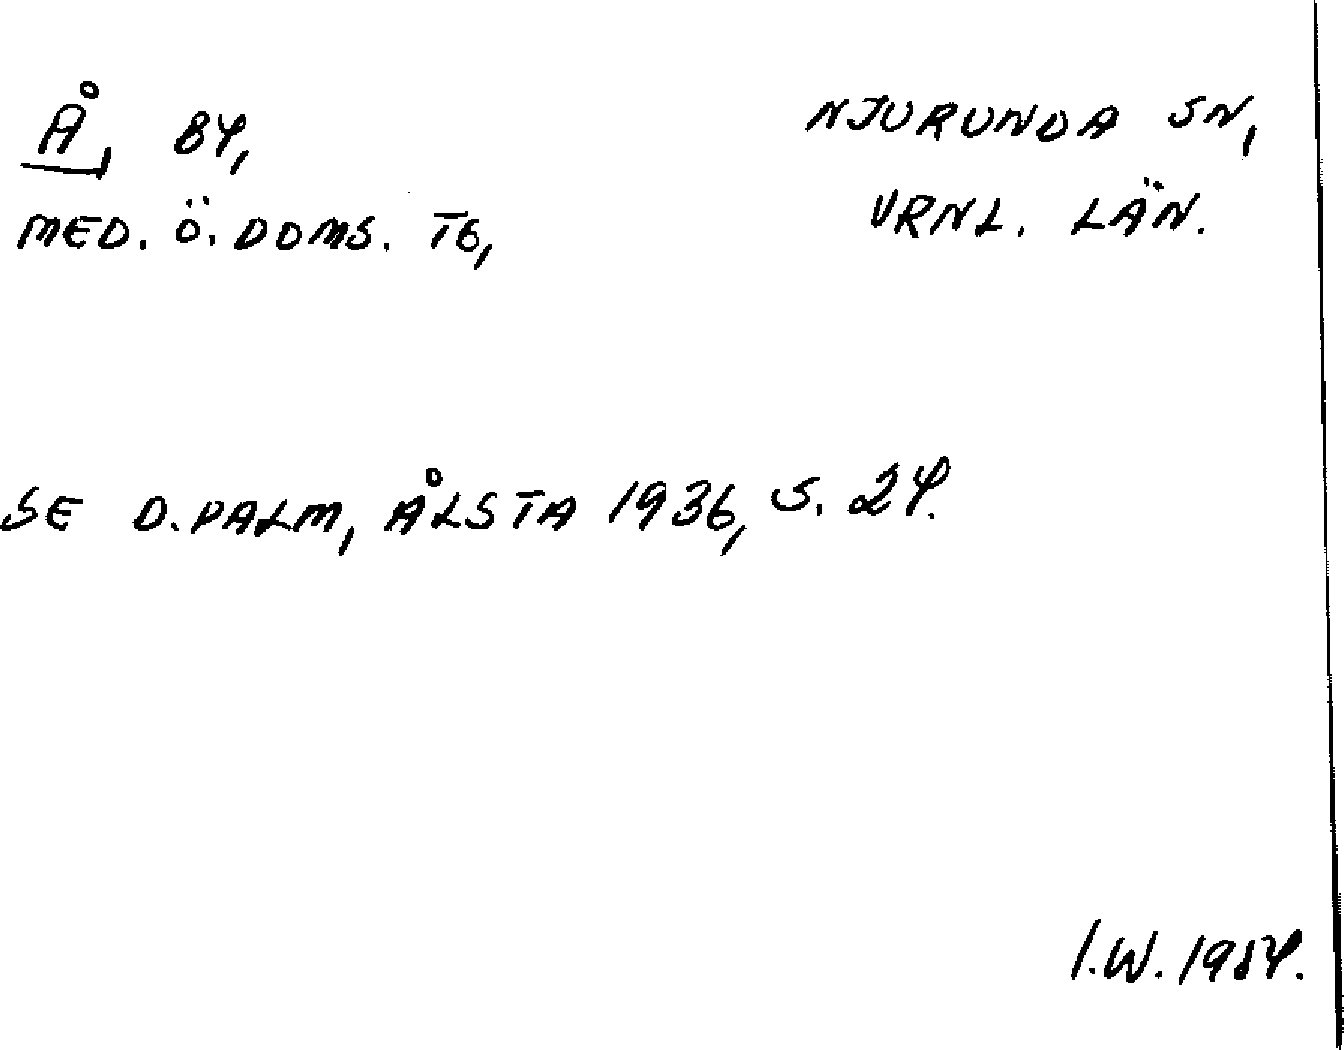 Å, BY, NJURUNDA SN,
MED. Ö. DOMS. TG, VRNL. LÄN.
SE D. PALM, ÅLSTA 1936, S. 24.
I.W. 1984.